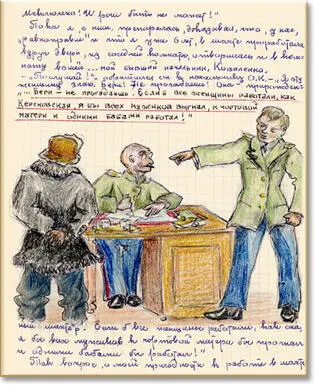 И речи быть не может!"
Пока я с ним препиралась, доказывая, что у нас,
„равноправие" и что я уже 6 лет в шахте проработала
вдруг дверь из соседней комнаты отворилась и в ком-
нату вошёл мой бывший начальник, Коваленко.
– „Послушай!" – обратился он к начальнику О.К. – „Я эту
женщину знаю. Бери! Не прогадаешь! Она – прирожден-
„... Бери – не прогадаешь. Если б все женщины работали, как
Керсновская, я бы всех мужиков выгнал к чортовой
матери и одними бабами работал!"
ный шахтёр! Если б все женщины работали, как она,
я бы всех мужиков к чортовой матери бы прогнал
и одними бабами бы работал!"
Так вопрос о моей пригодности к работе в шахте